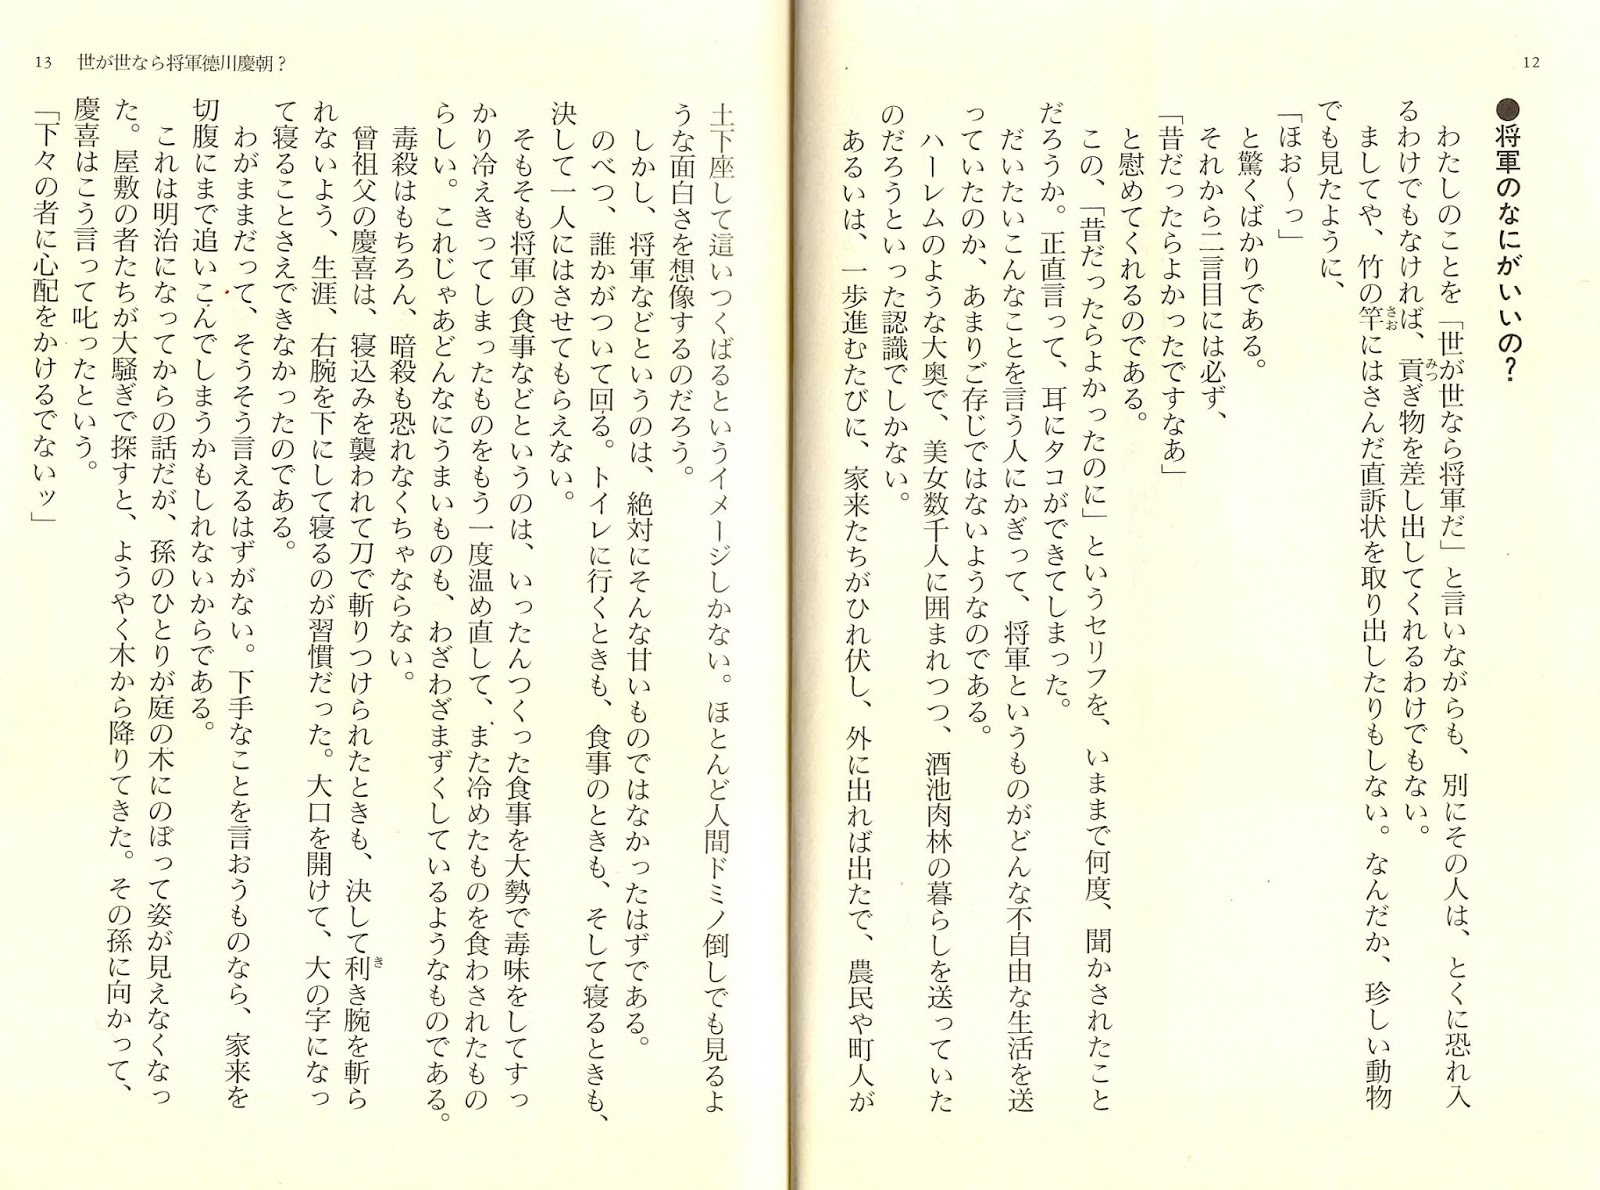 12
●将軍のなにがいいの?
わたしのことを「世が世なら将軍だ」と言いながらも、別にその人は、とくに恐れ入
るわけでもなければ、貢ぎ物を差し出してくれるわけでもない。
みつ
ましてや、竹の竿にはさんだ直訴状を取り出したりもしない。なんだか、珍しい動物
さお
でも見たように、
「ほお〜っ」
と驚くばかりである。
それから二言目には必ず、
「昔だったらよかったですなあ」
と慰めてくれるのである。
この、「昔だったらよかったのに」というセリフを、いままで何度、聞かされたこと
だろうか。正直言って、耳にタコができてしまった。
だいたいこんなことを言う人にかぎって、将軍というものがどんな不自由な生活を送
っていたのか、あまりご存じではないようなのである。
ハーレムのような大奥で、美女数千人に囲まれつつ、酒池肉林の暮らしを送っていた
のだろうといった認識でしかない。
あるいは、一歩進むたびに、家来たちがひれ伏し、外に出れば出たで、農民や町人が
13 世が世なら将軍徳川慶朝?
土下座して這いつくばるというイメージしかない。ほとんど人間ドミノ倒しでも見るよ
うな面白さを想像するのだろう。
しかし、将軍などというのは、絶対にそんな甘いものではなかったはずである。
のべつ、誰かがついて回る。トイレに行くときも、食事のときも、そして寝るときも、
決して一人にはさせてもらえない。
そもそも将軍の食事などというのは、いったんつくった食事を大勢で毒味をしてすっ
かり冷えきってしまったものをもう一度温め直して、また冷めたものを食わされたもの
らしい。これじゃあどんなにうまいものも、わざわざまずくしているようなものである。
毒殺はもちろん、暗殺も恐れなくちゃならない。
曾祖父の慶喜は、寝込みを襲われて刀で斬りつけられたときも、決して利き腕を斬ら
き
れないよう、生涯、右腕を下にして寝るのが習慣だった。大口を開けて、大の字になっ
て寝ることさえできなかったのである。
わがままだって、そうそう言えるはずがない。下手なことを言おうものなら、家来を
切腹にまで追いこんでしまうかもしれないからである。
これは明治になってからの話だが、孫のひとりが庭の木にのぼって姿が見えなくなっ
た。屋敷の者たちが大騒ぎで探すと、ようやく木から降りてきた。その孫に向かって、
慶喜はこう言って叱ったという。
「下々の者に心配をかけるでないッ」